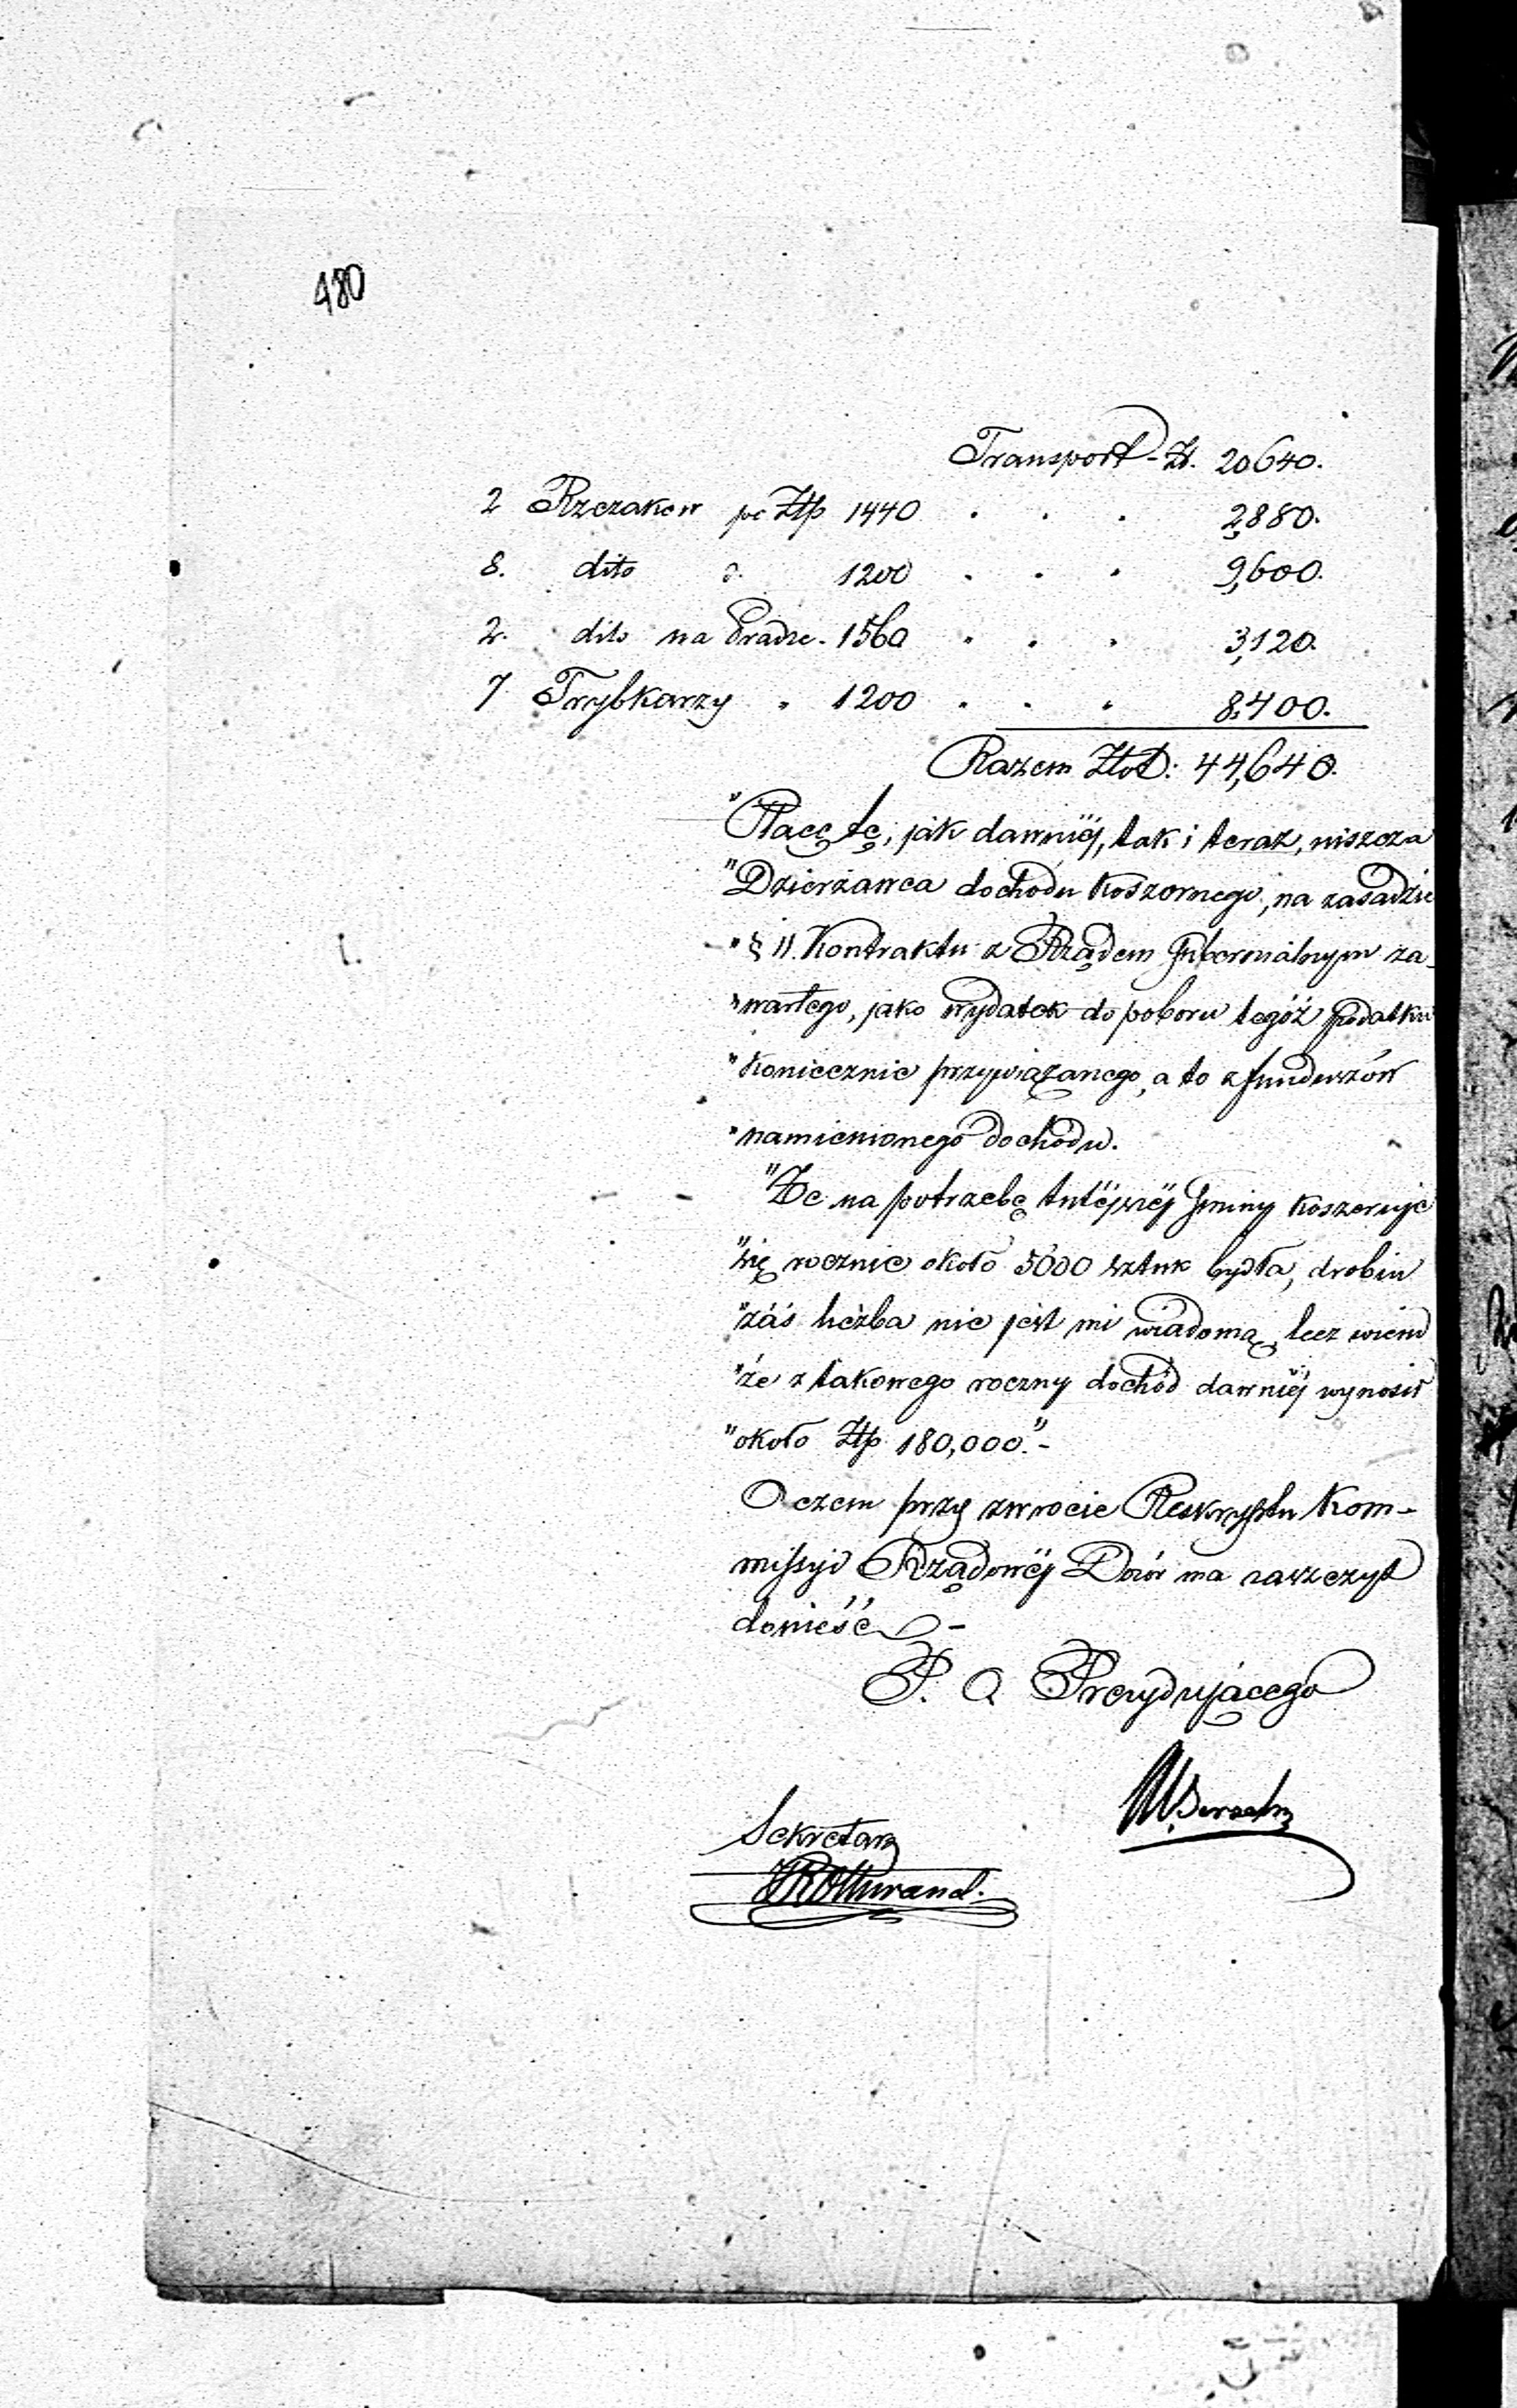 480
Transport - Zł. 20640.
2 Rzezaków po Złp 1440 . . . 2,880.
8. dito d. 1200 . . . 9,600.
2. dito na Pradze. 1560 . . . 3,120.
7 Trybkarzy " 1200 . . . 8,400.
Razem Złot: 44,640.
"Płacę tę, jak dawniéj, tak i teraz, uiszcza
"Dzierżawca dochodu koszernego, na zasadzie
"§ 11. Kontraktu z Rządem Gubernialnym za-
"wartego, jako wydatek do poboru tegóż podatku
"koniecznie przywiązanego, a to z funduszów
"namienionego dochodu.
"Że na potrzebę tutéjszéj Gminy koszeruje
"się rocznie około 5000 sztuk bydła, drobiu
"záś liczba nie jest mi wiadomą, lecz wiem
"że z takowego roczny dochód dawniéj wynosił
"około Złp 180,000."-
O czem przy zwrocie Reskryptu Kom-
missyi Rządowéj Dozór ma zaszczyt
donieść -
P. O. Prezydującego
Sekretarz